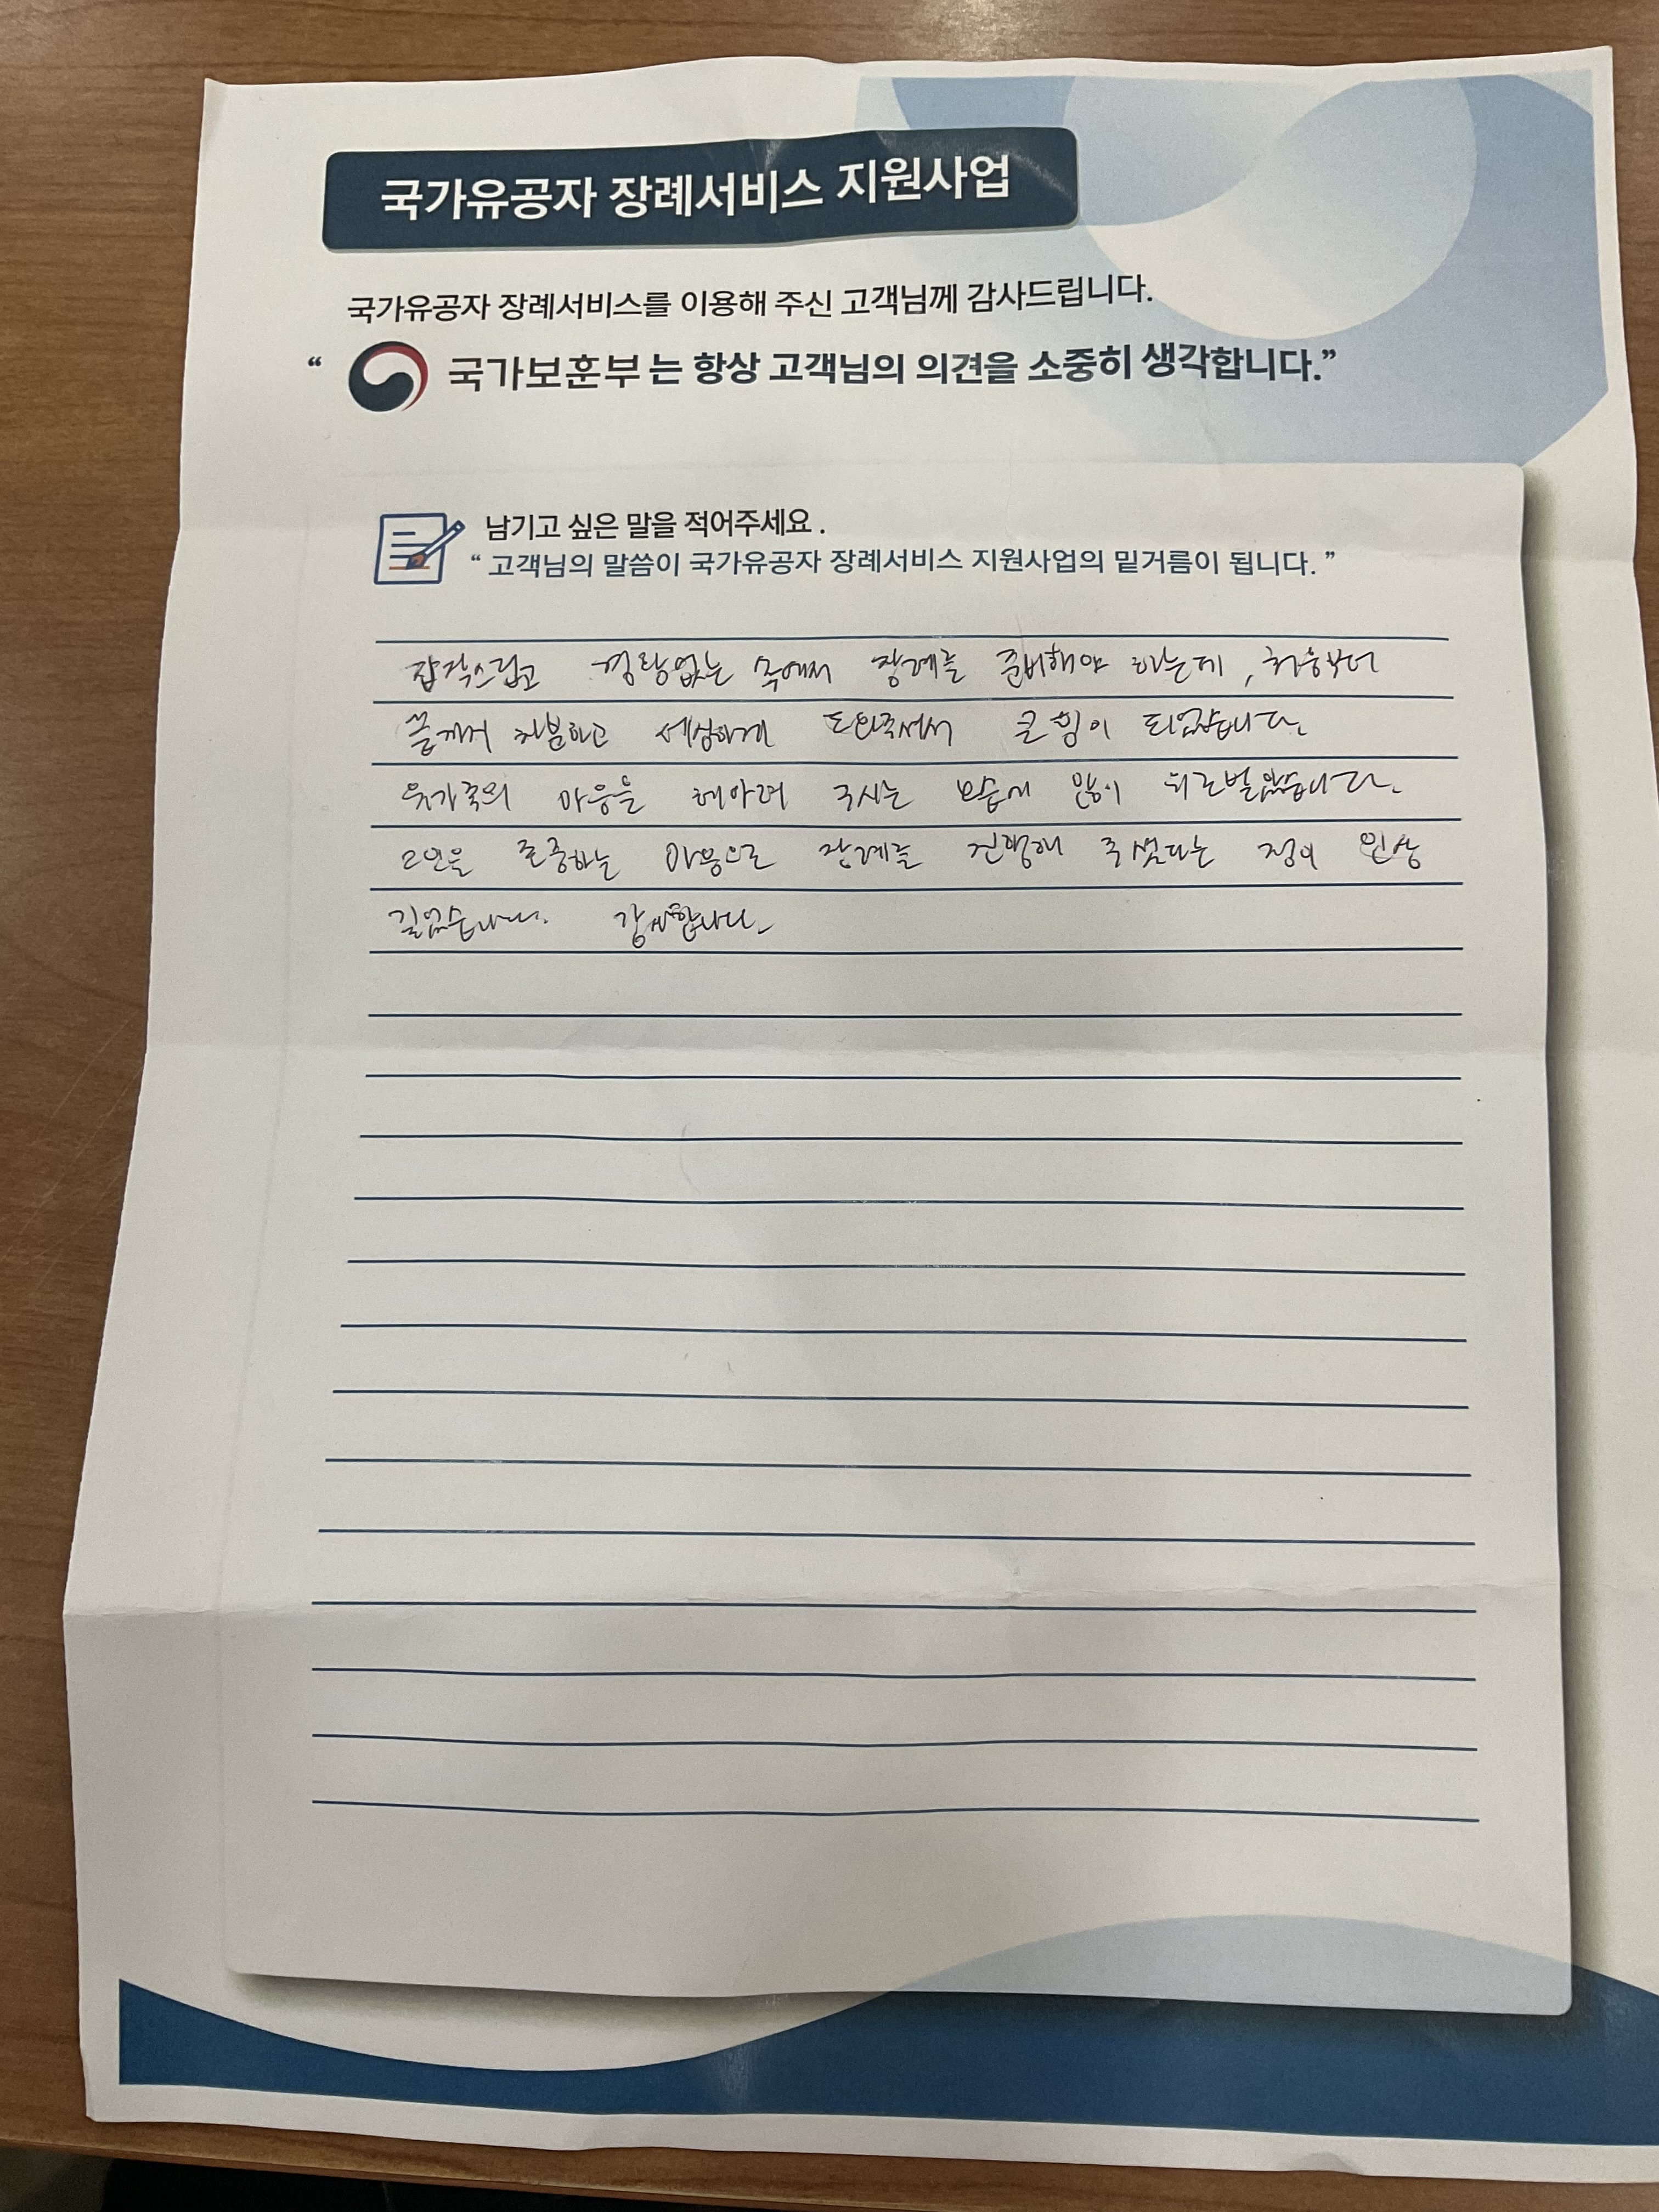 국가유공자 장례서비스 지원사업
국가유공자 장례서비스를 이용해 주신 고객님께 감사드립니다.
“ 국가보훈부 는 항상 고객님의 의견을 소중히 생각합니다.”
남기고 싶은 말을 적어주세요 .
“ 고객님의 말씀이 국가유공자 장례서비스 지원사업의 밑거름이 됩니다. ”
갑작스럽고 경황없는 속에서 장례를 준비해야 하는데 , 처음부터
끝까지 차분하고 세심하게 도와주셔서 큰 힘이 되었습니다.
유가족의 마음을 헤아려 주시는 모습에 많이 위로받았습니다.
고인을 존중하는 마음으로 장례를 진행해 주셨다는 점이 인상
깊었습니다. 감사합니다.